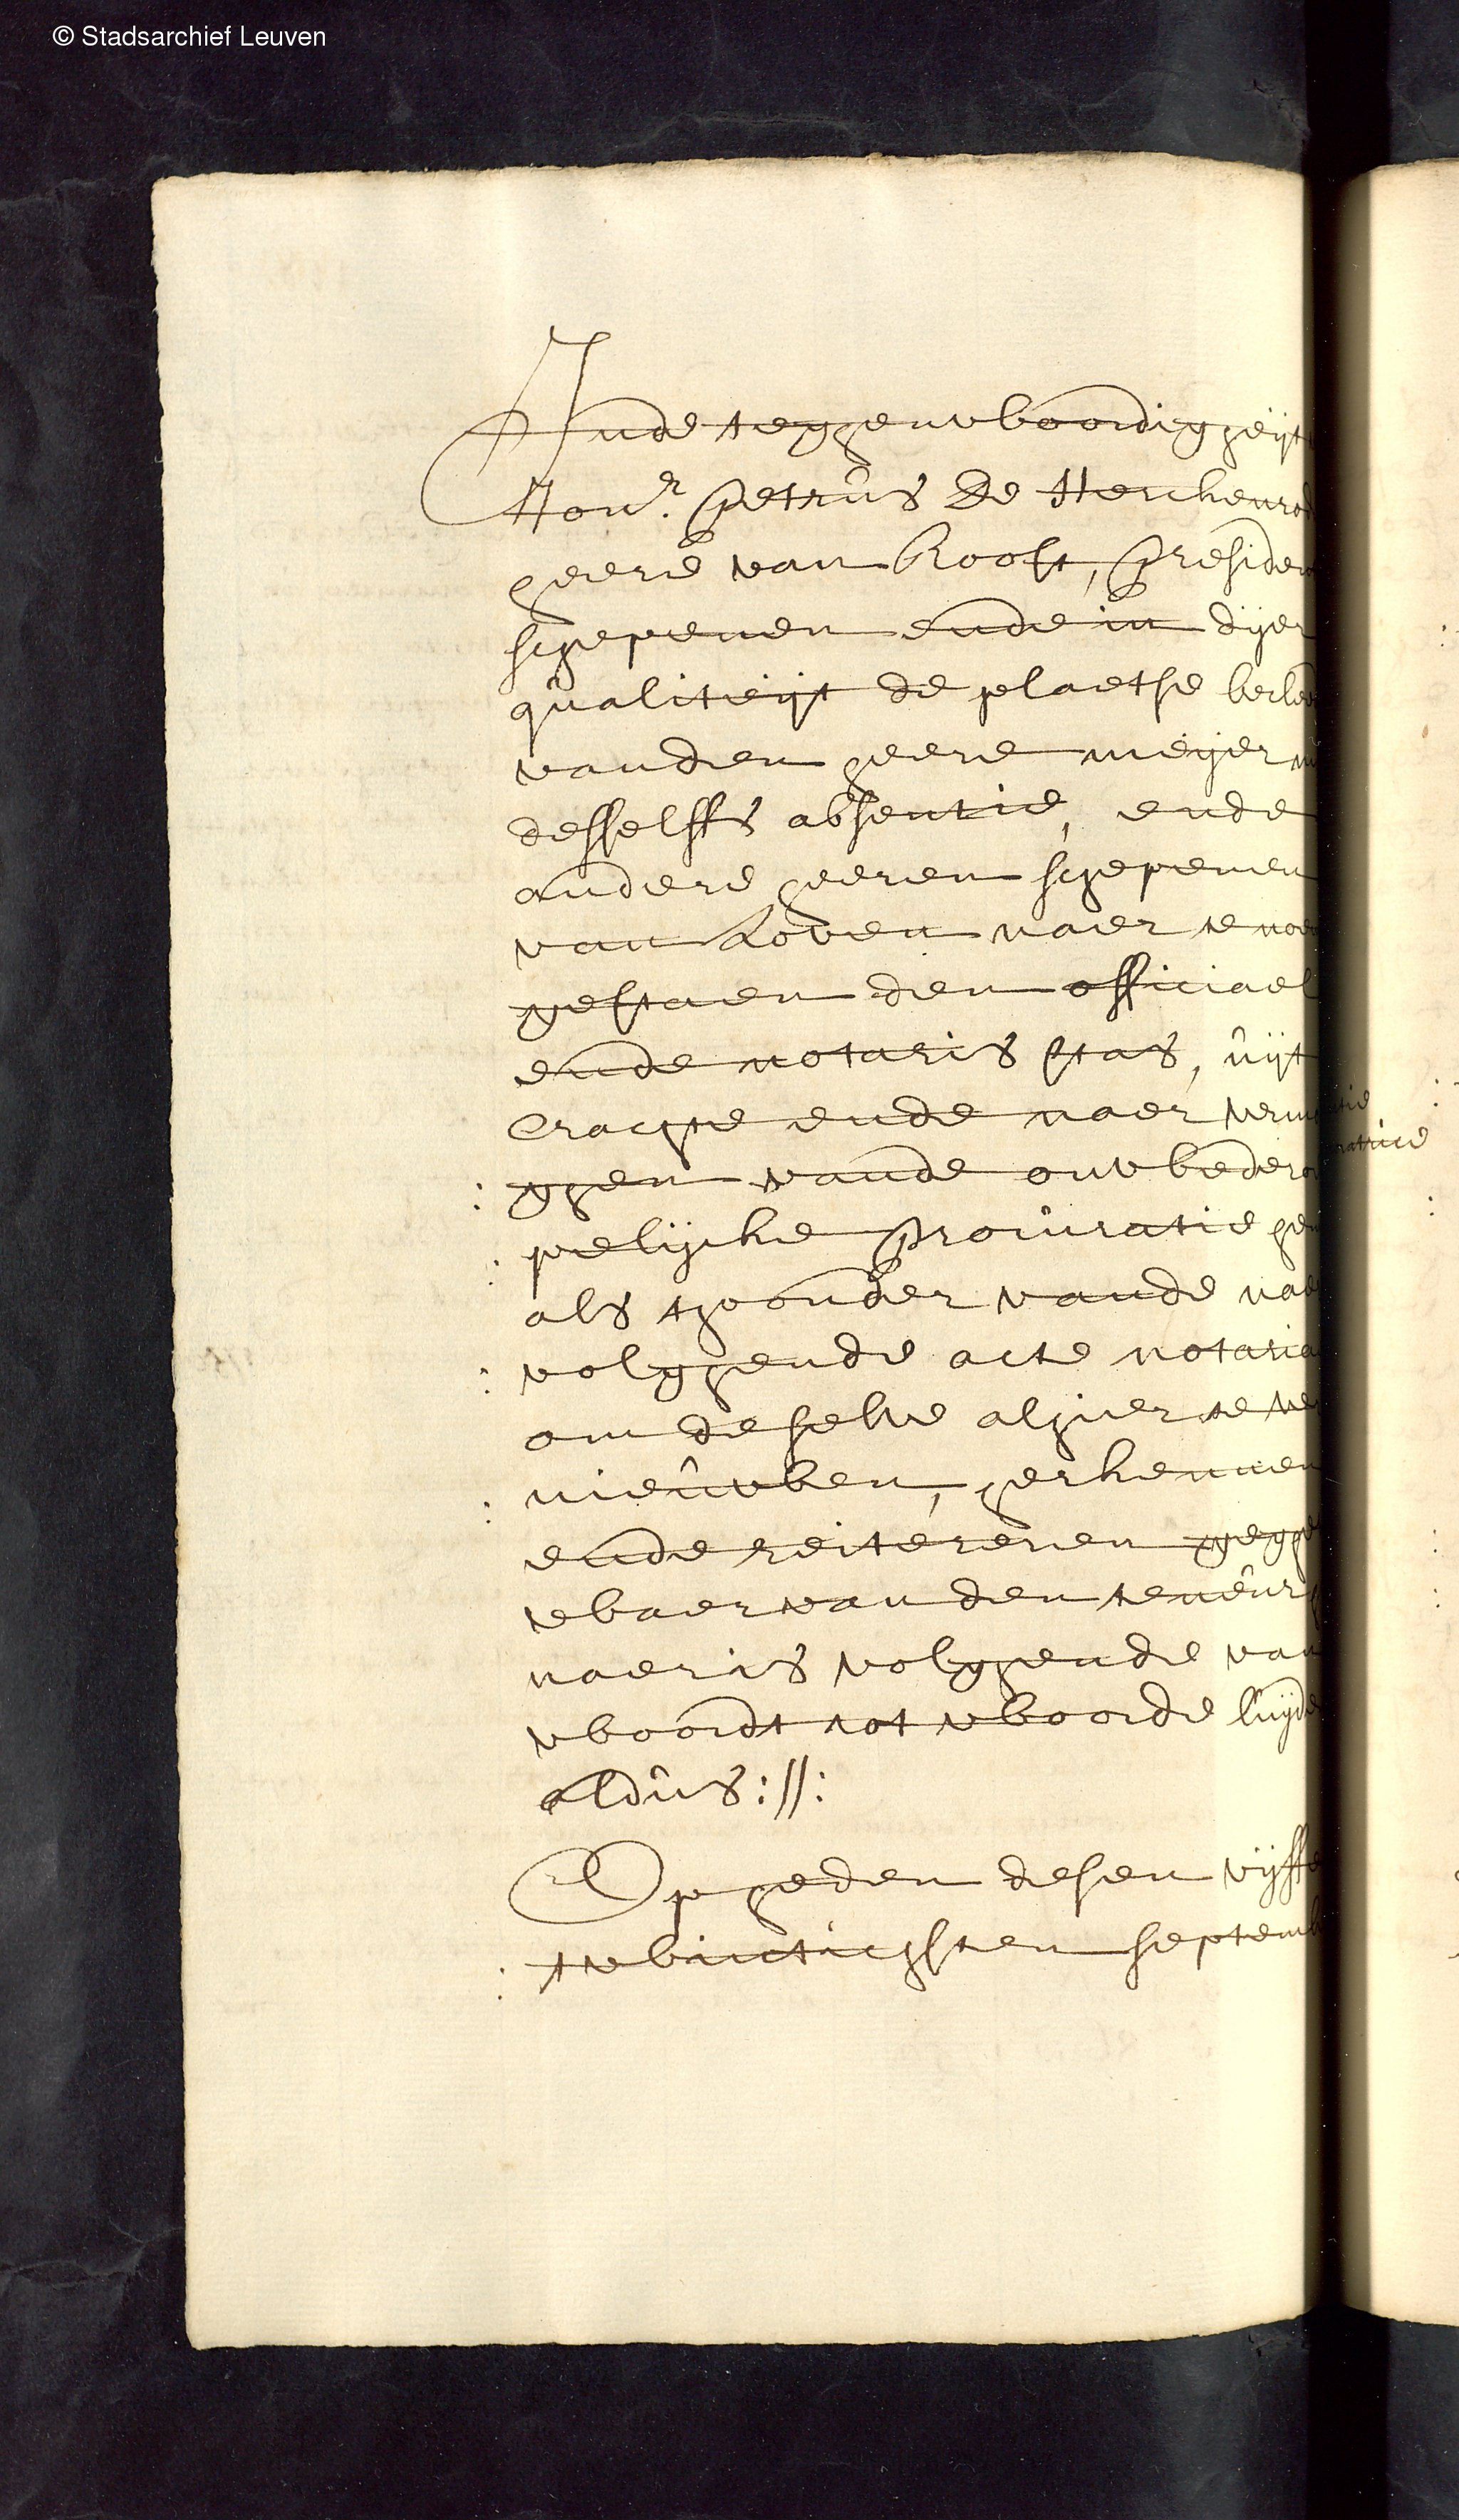 © Stadsarchief Leuven
Inde tegghenwoordiggheijt
Jonr. Petrus De Herckenrod
heere van Roost, Presiden
schepenen ende in dijer
qualiteijt de plaetse becle
vanden heere meijer
desselffs absentie, ende
andere heeren schepenen
van Loven naer te noe
ghestaen den officiael
ende notaris Stas, uijt
Crachte ende naer verm
: gghen vande onwbedero
: pelijcke Procuratie
als thoonder vande nae
: volgghende acte notaria
om deselve alhier te ver
: nieuwen, herkennen
ende reitereren gheggh
waer van den teneur
naer is volgghende van
woordt tot woorde luijde
aldus ://:
Op heden desen vijff
: twintichsten septemb